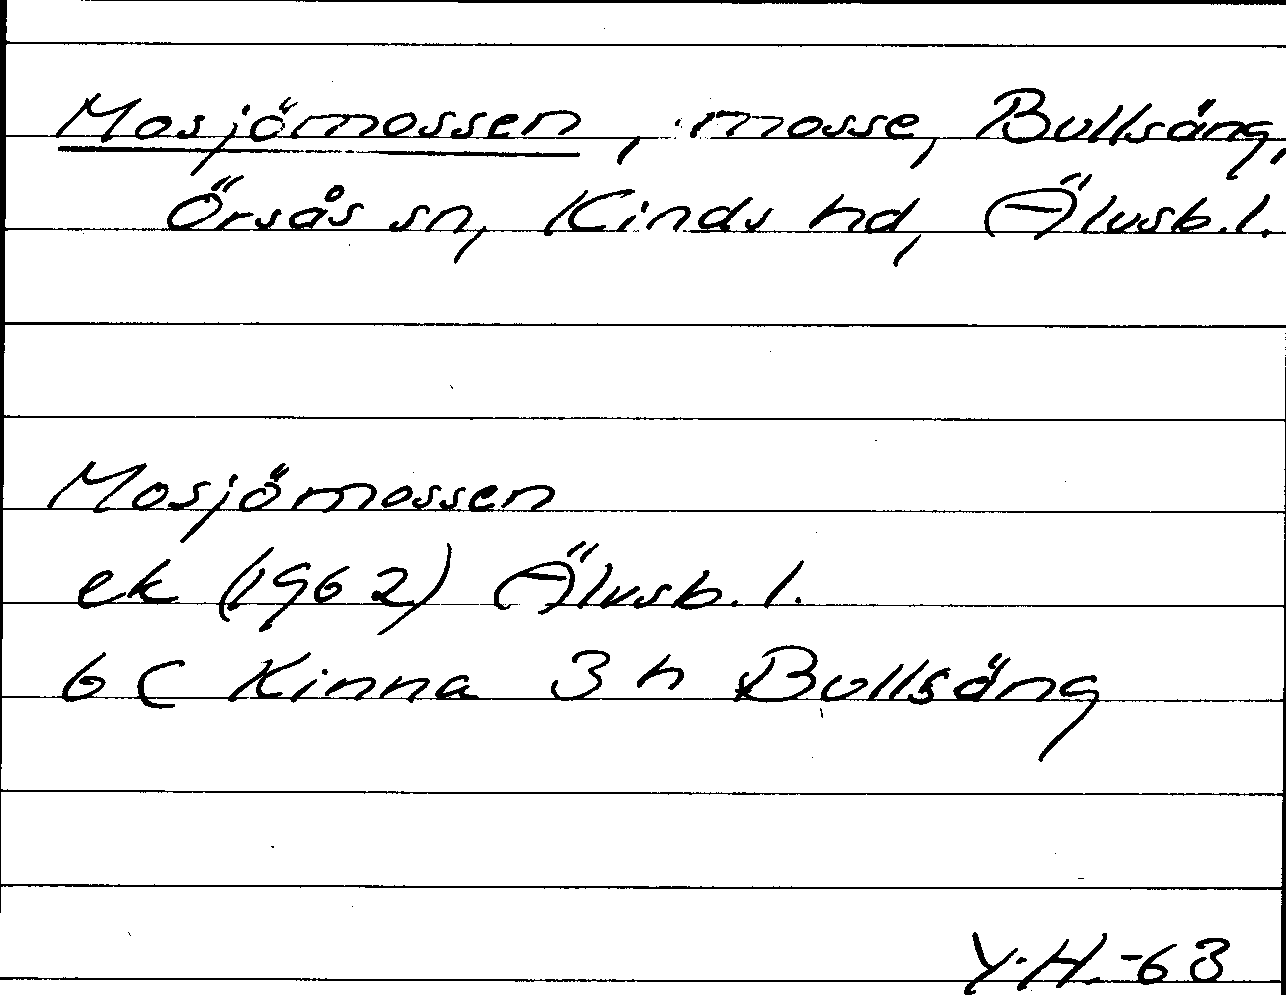 Mosjömossen, mosse, Bullsäng,
Örsås sn, Kinds hd, Älvsb. l.
Mosjömossen
ek (1962) Älvsb. l.
6 C Kinna 3 h Bullsäng
Y.H.-63